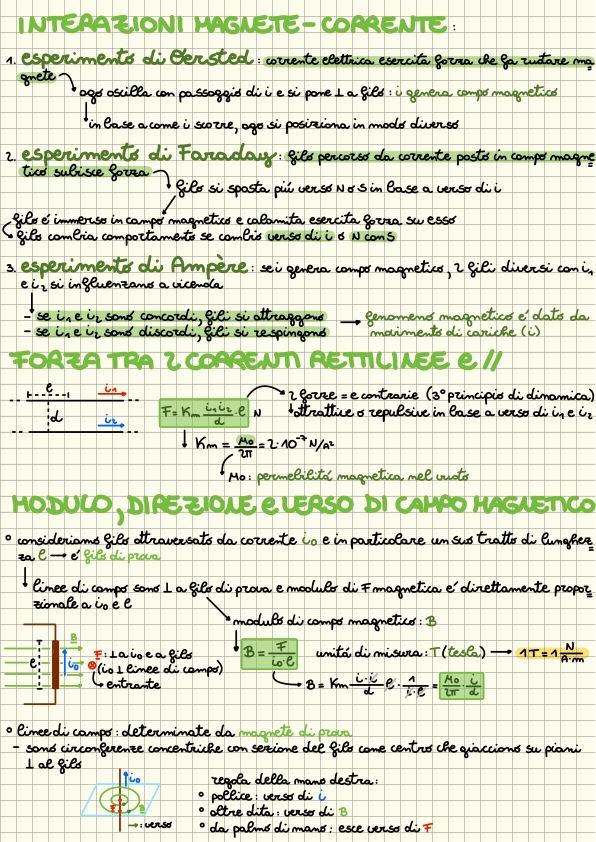 INTERAZIONI MAGNETE-CORRENTE:
1. esperimento di Oersted: corrente elettrica esercita forza che fa ruotare ma
gnete
ago oscilla con passaggio di i e si pone ⊥ a filo: i genera campo magnetico
in base a come i scorre, ago si posiziona in modo diverso
2. esperimento di Faraday: filo percorso da corrente posto in campo magne
tico subisce forza
filo si sposta più verso N o S in base a verso di i
filo è immerso in campo magnetico e calamita esercita forza su esso
filo cambia comportamento se cambio verso di i o N con S
3. esperimento di Ampère: se i genera campo magnetico, 2 fili diversi con i₁
e i₂ si influenzano a vicenda
- se i₁ e i₂ sono concordi, fili si attraggono → fenomeno magnetico è dato da
- se i₁ e i₂ sono discordi, fili si respingono movimento di cariche (i)
FORZA TRA 2 CORRENTI RETTILINEE e //
l i₁
d i₂
F = Km i₁ i₂ / d · l N
2 forze = e contrarie (3° principio di dinamica)
attrattive o repulsive in base a verso di i₁ e i₂
Km = μ₀/2π = 2·10⁻⁷ N/A²
μ₀: permebilità magnetica nel vuoto
MODULO, DIREZIONE e VERSO DI CAMPO MAGNETICO
° consideriamo filo attraversato da corrente i₀ e in particolare un suo tratto di lunghez
za l → è filo di prova
linee di campo sono ⊥ a filo di prova e modulo di F magnetica è direttamente propor
zionale a i₀ e l
modulo di campo magnetico: B
l B i₀
F: ⊥ a i₀ e a filo
(i₀ ⊥ linee di campo)
entrante
B = F / i₀·l unità di misura: T (tesla) → 1T = 1 N/A·m
B = Km i·i/d l · 1/i·l = μ₀/2π · i/d
° linee di campo: determinate da magnete di prova
- sono circonferenze concentriche con sezione del filo come centro che giacciono su piani
⊥ al filo
i₀
F B
→: verso
regola della mano destra:
° pollice: verso di i
° altre dita: verso di B
° da palmo di mano: esce verso di F